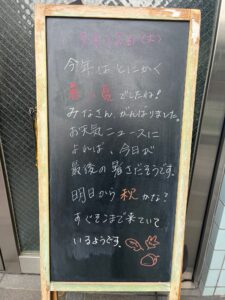 今年はとにかく
暑い夏でしたね！
みなさん、がんばりました。
お天気ニュースに
よれば、今日が
最後の暑さだそうです。
明日から秋かな？
すぐそこまで来ていて
いるようです。